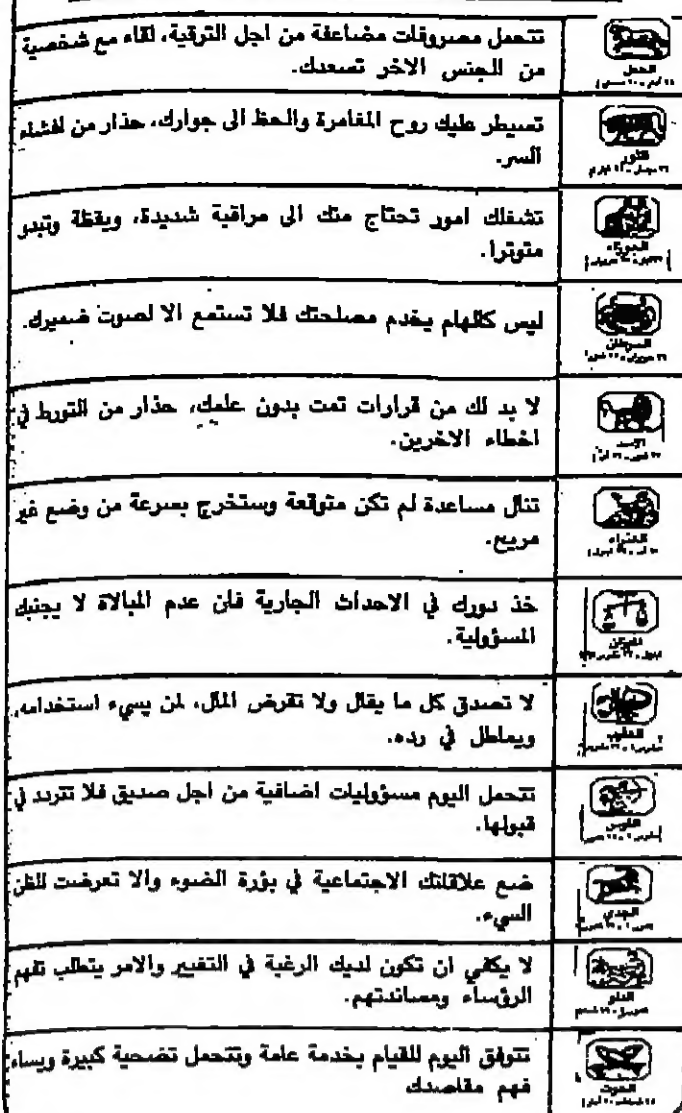 تتحمل مصروفات مضاعفة من اجل الترقية، لقاء مع شخصية
من الجنس الاخر تسعدك.
الحمل
تسيطر عليك روح المغامرة والحظ الى جوارك، حذار من افشاء
السر.
الثور
تشغلك امور تحتاج منك الى مراقبة شديدة، ويقظة وتبدو
متوترا.
الجوزاء
ليس كالهام يخدم مصلحتك فلا تستمع الا لصوت ضميرك.
السرطان
لا بد لك من قرارات تمت بدون علمك، حذار من التورط في
اخطاء الاخرين.
الاسد
تنال مساعدة لم تكن متوقعة وستخرج بسرعة من وضع غير
مريح.
العذراء
خذ دورك في الاحداث الجارية فان عدم المبالاة لا يجنبك
المسؤولية.
الميزان
لا تصدق كل ما يقال ولا تقرض المال، لمن يسيء استخدامه،
ويماطل في رده.
العقرب
تتحمل اليوم مسؤوليات اضافية من اجل صديق فلا تتردد في
قبولها.
القوس
ضع علاقاتك الاجتماعية في بؤرة الضوء والا تعرضت للظن
السيء.
الجدي
لا يكفي ان تكون لديك الرغبة في التغيير والامر يتطلب تفهم
الرؤساء ومساندتهم.
الدلو
تتوفق اليوم للقيام بخدمة عامة وتتحمل تضحية كبيرة ويساء
فهم مقاصدك
الحوت